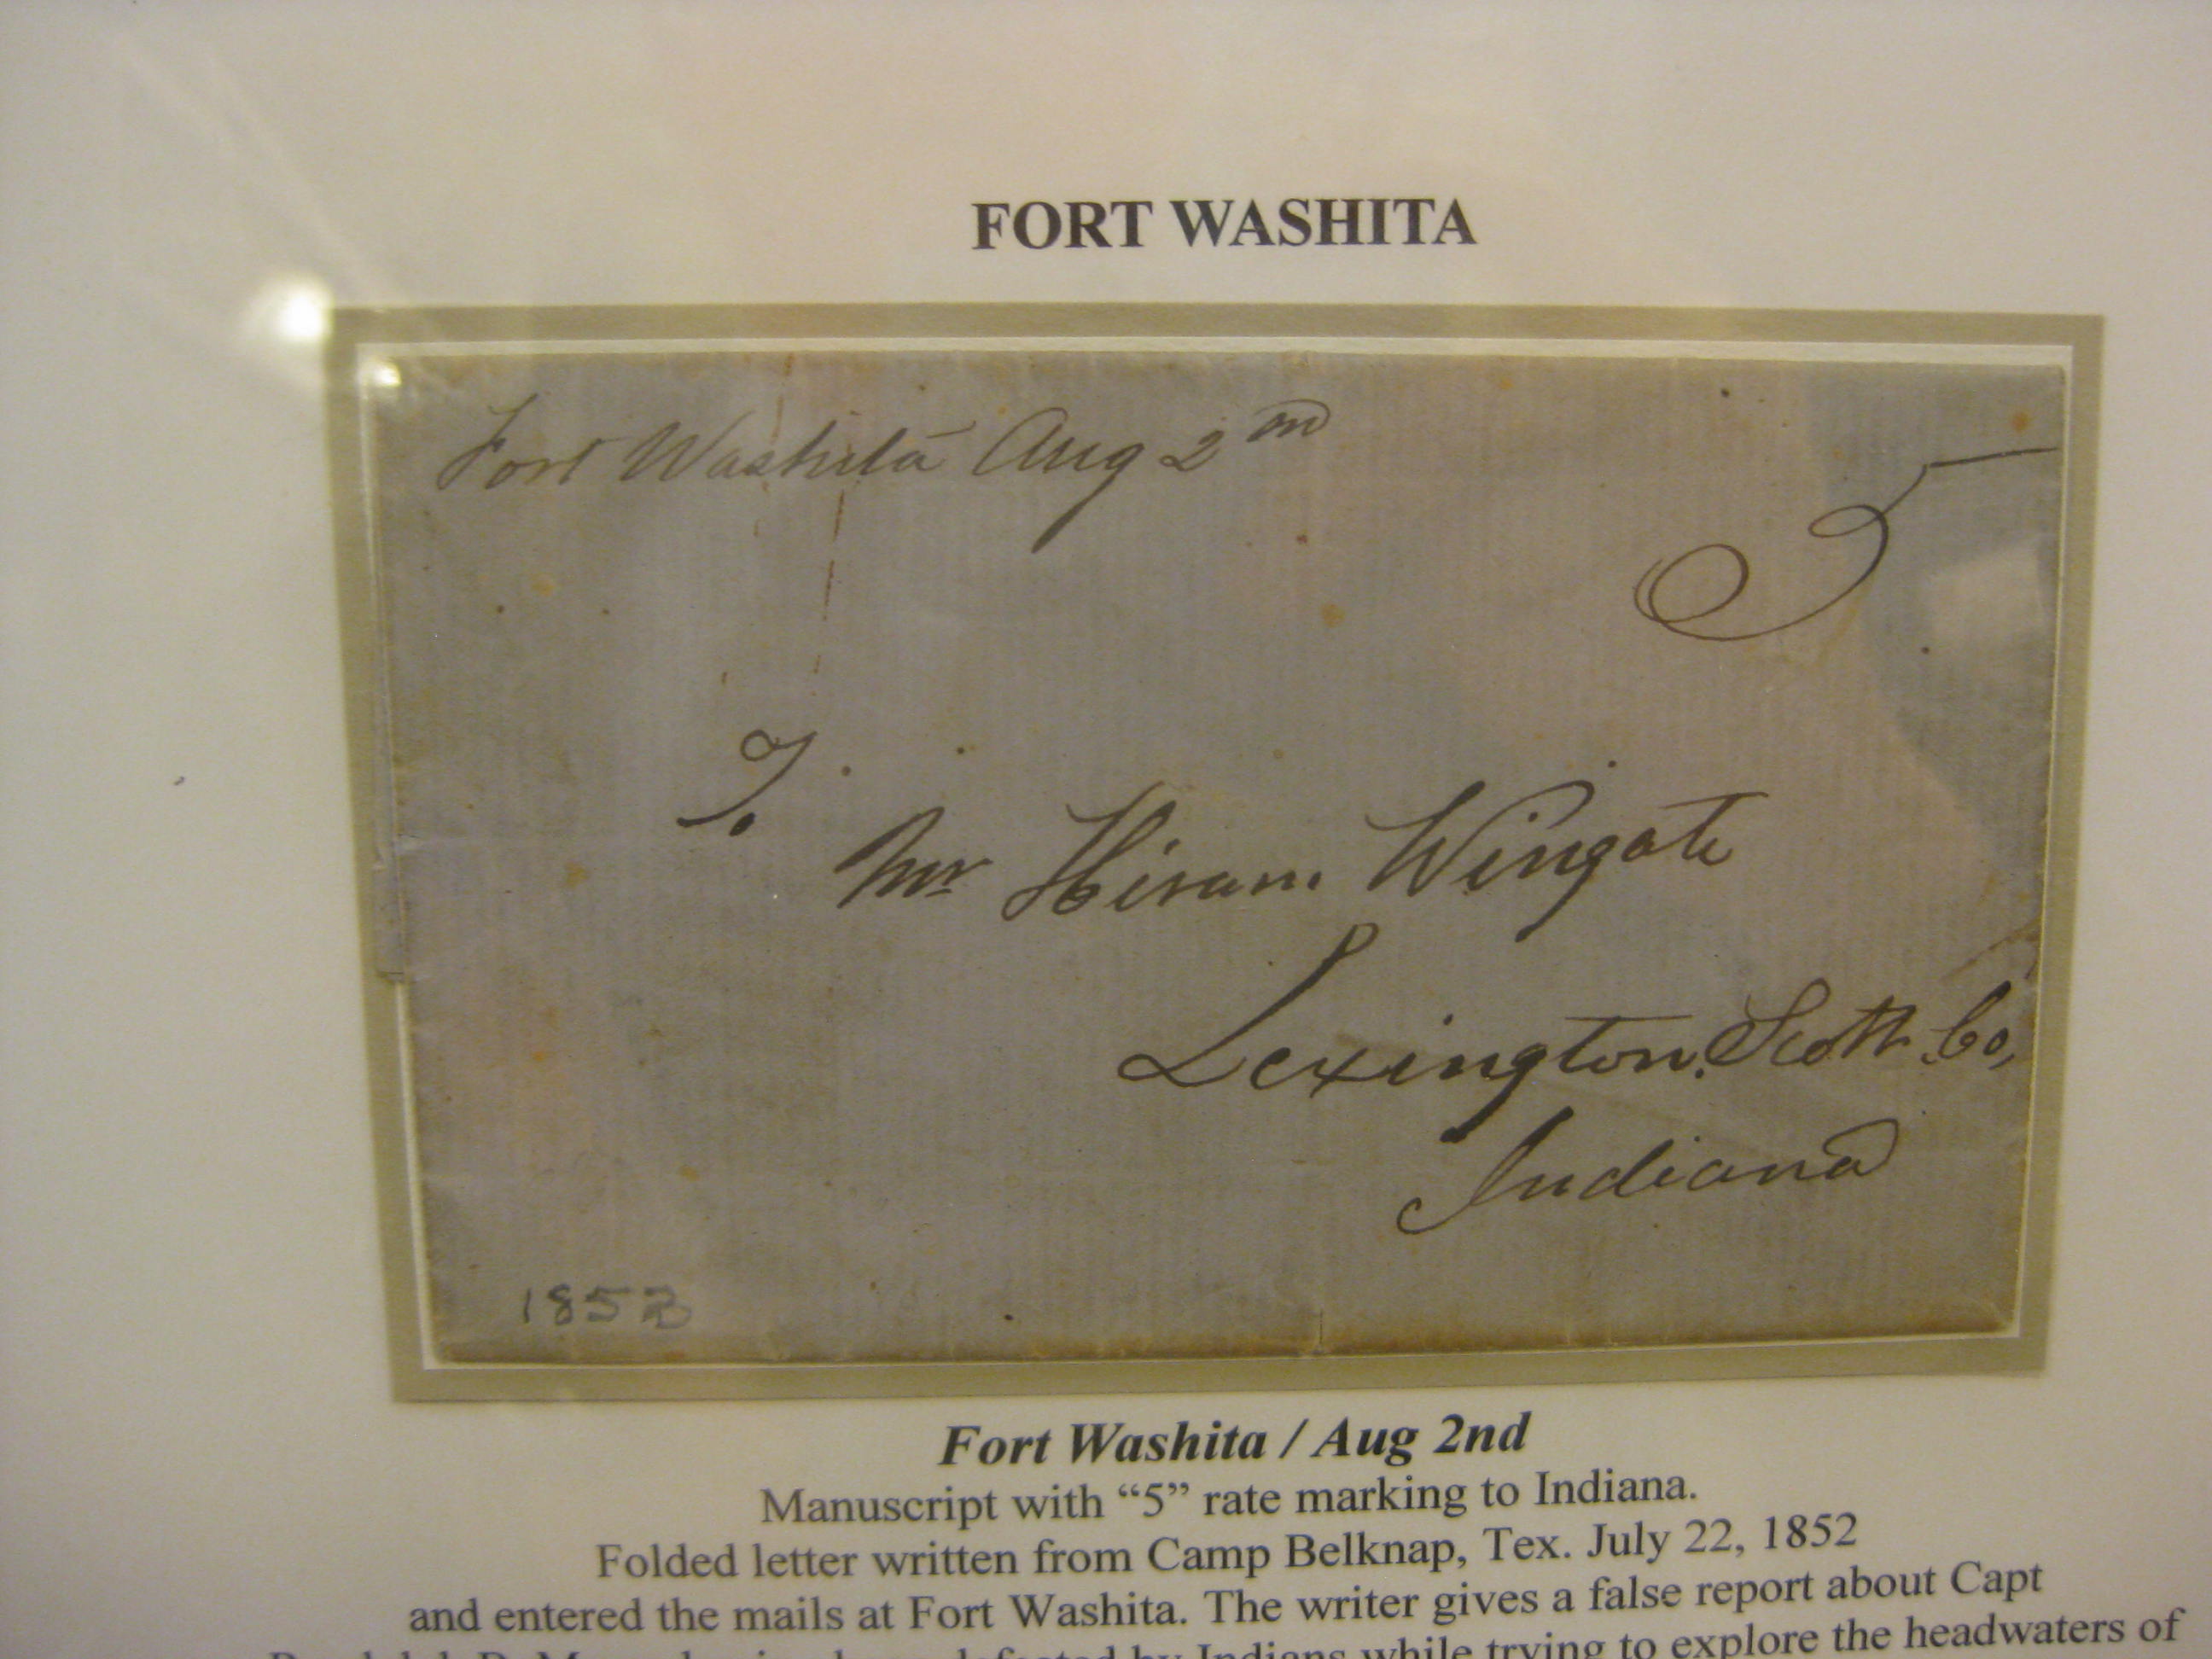 FORT WASHITA
Fort Washita Aug 2nd
5
To.
Mr Hiram Wingate
Lexington, Scott Co,
Indiana
1852
Fort Washita / Aug 2nd
Manuscript with “5” rate marking to Indiana.
Folded letter written from Camp Belknap, Tex. July 22, 1852
and entered the mails at Fort Washita. The writer gives a false report about Capt
defeated by Indians while trying to explore the headwaters of